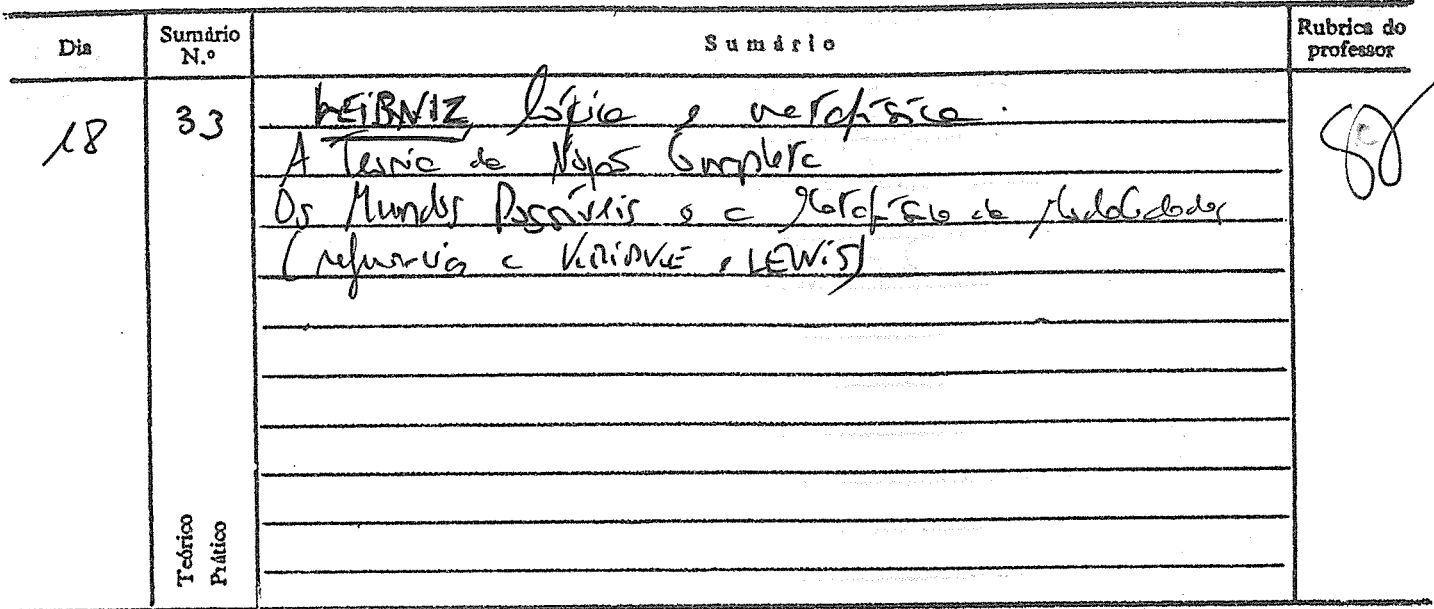 Dia Sumário N.º Sumário Rubrica do professor
18 33 LEIBNIZ lógica e metafísica.
A Teoria da Noção Completa
Os Mundos Possíveis e a Metafísica da Modalidade
(referência a KRIPKE e LEWIS)
Teórico
Prático